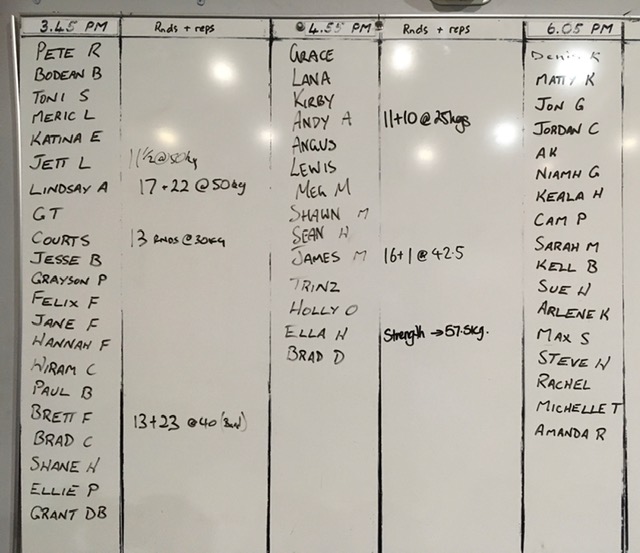 3.45 PM Rnds + reps
PETE R
BODEAN B
TONI S
MERIC L
KATINA E
JETT L 11 1/2 @ 50kg
LINDSAY A 17 + 22 @ 50kg
GT
COURTS 13 RNDS @ 30kg
JESSE B
GRAYSON P
FELIX F
JANE F
HANNAH F
WIRAM C
PAUL B
BRETT F 13+23 @ 40
BRAD C
SHANE W
ELLIE P
GRANT DB
4.55 PM Rnds + reps
GRACE
LANA
KIRBY
ANDY A 11+10 @ 25kgs
ANGUS
LEWIS
MEG M
SHAWN M
SEAN W
JAMES M 16+1 @ 42.5
TRINZ
HOLLY O
ELLA H Strength → 57.5kg.
BRAD D
6.05 PM
K
MATTY K
JON G
JORDAN C
AK
NIAMH G
KEALA H
CAM P
SARAH M
KELL B
SUE W
ARLENE K
MAX S
STEVE W
RACHEL
MICHELLE T
AMANDA R